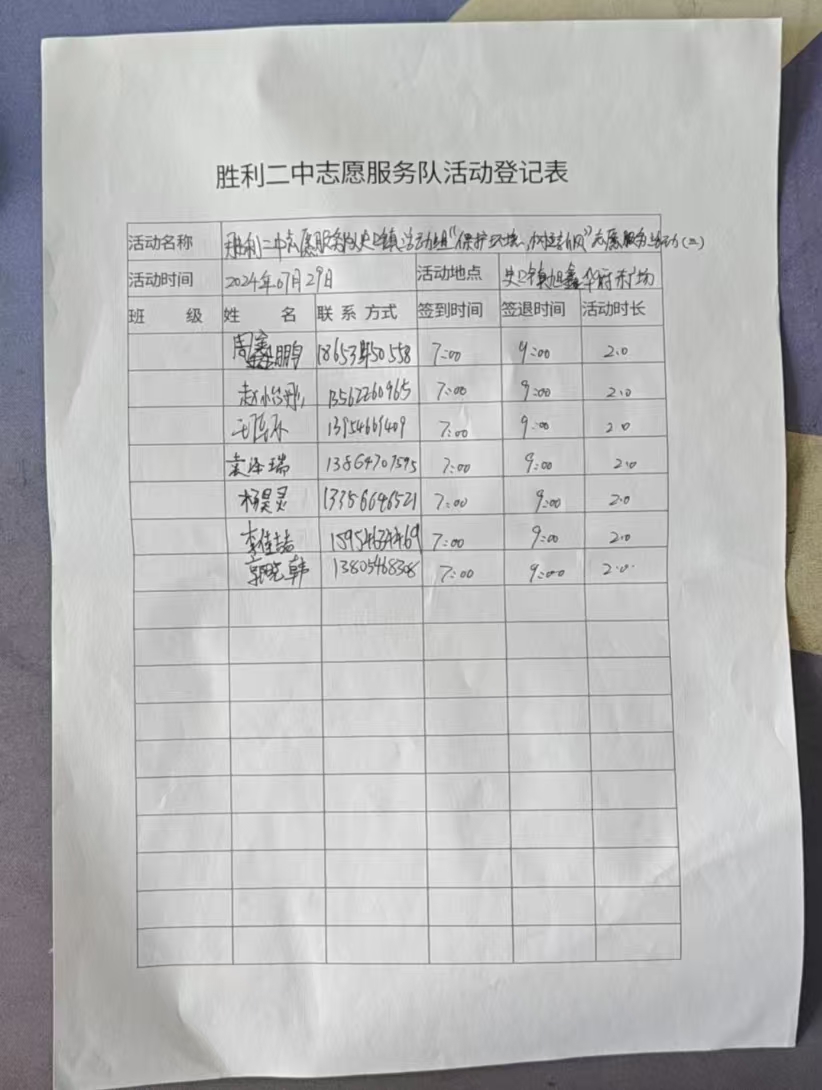 胜利二中志愿服务队活动登记表
活动名称 胜利二中志愿服务队史口镇活动组"保护环境、你我"志愿服务活动(二)
活动时间 2024年07月29日 活动地点 史口镇旭鑫华府广场
班 级 姓 名 联系方式 签到时间 签退时间 活动时长
周鑫鹏 18653450558 7:00 9:00 2.0
赵怡彤 13562260965 7:00 9:00 2.0
13954661409 7:00 9:00 2.0
袁泽瑞 13864707595 7:00 9:00 2.0
杨昊灵 13356646521 7:00 9:00 2.0
李佳喆 7:00 9:00 2.0
郭晓韩 13805468308 7:00 9:00 2.0